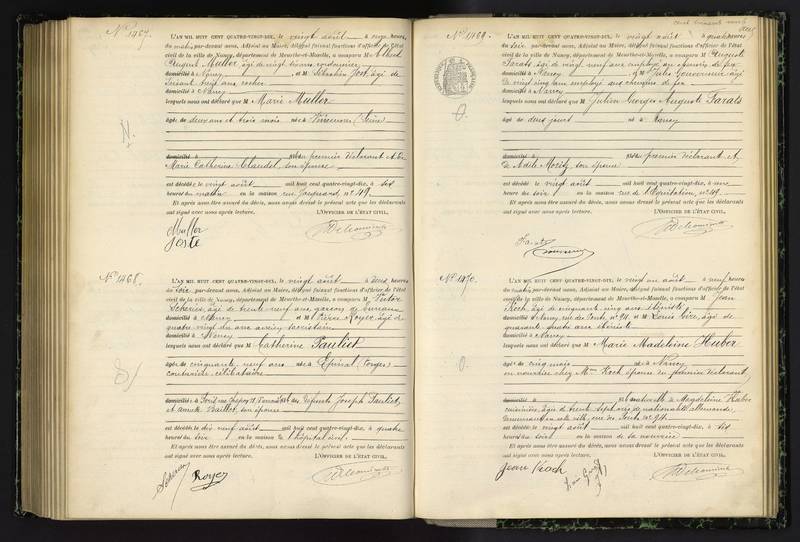 No 1467.
L'AN MIL HUIT CENT QUATRE-VINGT-DIX, le vingt août à onze heures
du matin par-devant nous, Adjoint au Maire, délégué faisant fonctions d'officier de l'état
civil de la ville de Nancy, département de Meurthe-et-Moselle, a comparu M Albert
August Muller, âgé de vingt trois ans, cordonnier
domicilié à Nancy et M Sébastien Jost, âgé de
soixante neuf ans, cocher
domicilié à Nancy
lesquels nous ont déclaré que M Marie Muller
âgée de deux ans et trois mois née à Vincennes (Seine)
domicilié à premier déclarant et de
Marie Catherine Claudel, son épouse
est décédée le vingt août mil huit cent quatre-vingt-dix, à six
heures du matin en la maison rue Jacquard, no 49
Et après nous être assuré du décès, nous avons dressé le présent acte que les déclarants
ont signé avec nous après lecture. L'OFFICIER DE L'ÉTAT CIVIL,
Muller
Joste
No 1468.
L'AN MIL HUIT CENT QUATRE-VINGT-DIX, le vingt août à deux heures
du soir par-devant nous, Adjoint au Maire, délégué faisant fonctions d'officier de l'état
civil de la ville de Nancy, département de Meurthe-et-Moselle, a comparu M Victor
Scherier, âgé de trente neuf ans, garçon de bureau
domicilié à Nancy et M Pierre Royer, âgé de
quatre vingt un ans, ancien sacristain
domicilié à Nancy
lesquels nous ont déclaré que M Catherine Paulist
âgée de cinquante neuf ans née à Epinal (Vosges)
couturière, célibataire
domicilié à défunts Joseph Paulist,
et Vaillot, son épouse
est décédée le dix neuf août mil huit cent quatre-vingt-dix, à quatre
heures du soir en la maison l'hôpital civil
Et après nous être assuré du décès, nous avons dressé le présent acte que les déclarants
ont signé avec nous après lecture. L'OFFICIER DE L'ÉTAT CIVIL,
Royer
No 1469.
L'AN MIL HUIT CENT QUATRE-VINGT-DIX, le vingt août à quatre heures
du soir par-devant nous, Adjoint au Maire, délégué faisant fonctions d'officier de l'état
civil de la ville de Nancy, département de Meurthe-et-Moselle, a comparu M Auguste
Farats, âgé de vingt neuf ans, employé au chemin de fer
domicilié à Nancy et M Jules âgé
de vingt cinq ans, employé aux chemins de fer
domicilié à Nancy
lesquels nous ont déclaré que M Julien Georges Auguste Farats
âgé de deux jours né à Nancy
domicilié à premier déclarant et
de Adèle Moritz, son épouse
est décédé le vingt août mil huit cent quatre-vingt-dix, à une
heure du soir en la maison rue de l'Équitation, no 49
Et après nous être assuré du décès, nous avons dressé le présent acte que les déclarants
ont signé avec nous après lecture. L'OFFICIER DE L'ÉTAT CIVIL,
No 1470.
L'AN MIL HUIT CENT QUATRE-VINGT-DIX, le vingt un août à neuf heures
du matin par-devant nous, Adjoint au Maire, délégué faisant fonctions d'officier de l'état
civil de la ville de Nancy, département de Meurthe-et-Moselle, a comparu M Jean
Koch, âgé de cinquante cinq ans, ébéniste
domicilié à Nancy, et M Louis Gire, âgé de
quarante quatre ans, ébéniste
domicilié à Nancy
lesquels nous ont déclaré que M Marie Madeleine Huber
âgée de cinq mois née à Nancy
en nourrice chez Mme Koch épouse du premier déclarant
domicilié à Magdeleine Huber
cuisinière, âgée de trente sept ans, de nationalité allemande,
est décédée le vingt août mil huit cent quatre-vingt-dix, à six
heures du soir en la maison de sa nourrice
Et après nous être assuré du décès, nous avons dressé le présent acte que les déclarants
ont signé avec nous après lecture. L'OFFICIER DE L'ÉTAT CIVIL,
Jean Koch